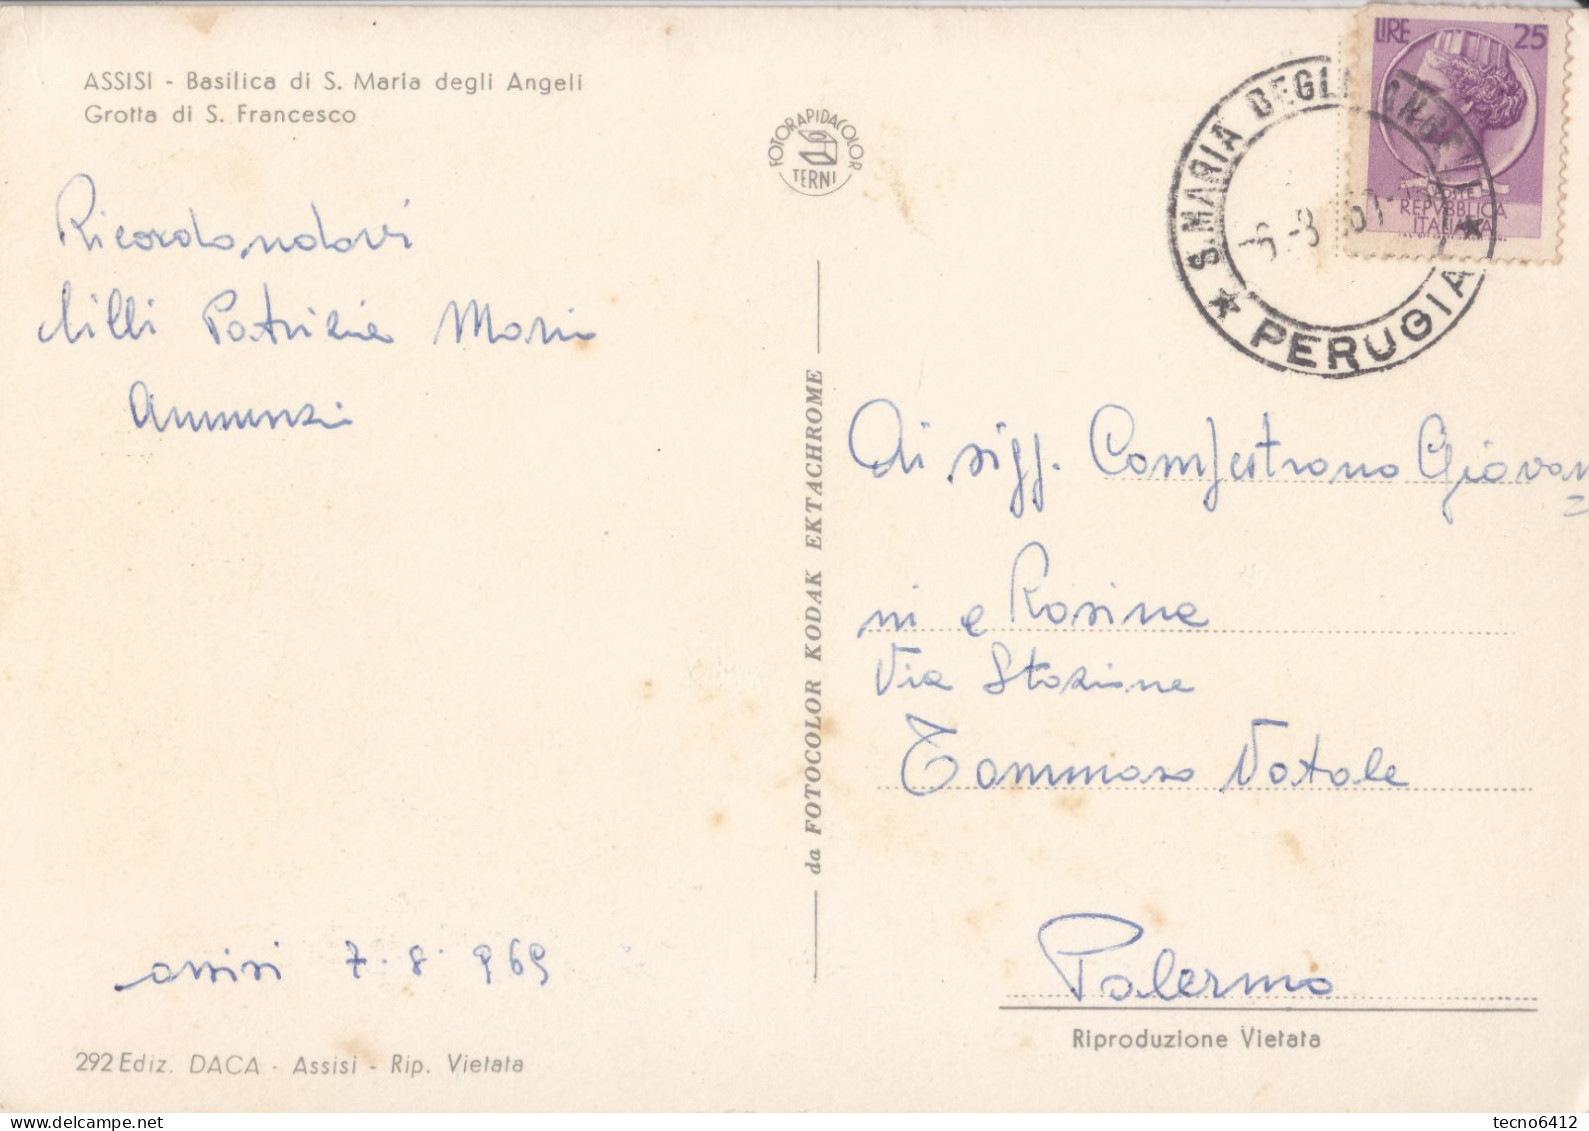 ASSISI - Basilica di S. Maria degli Angeli
Grotta di S. Francesco
Ricordandovi
Lilli Patrizia Mario
Annunzi
assisi 7.8.969
292 Ediz. DACA - Assisi - Rip. Vietata
FOTORAPIDACOLOR
TERNI
da FOTOCOLOR KODAK EKTACHROME
LIRE 25
REPVBBLICA
ITALIANA
S. MARIA DEGLI ANGELI
PERUGIA
Ai sigg. Giovan
ni e Rosina
Via Stazione
Tommaso Natale
Palermo
Riproduzione Vietata
tecno6412